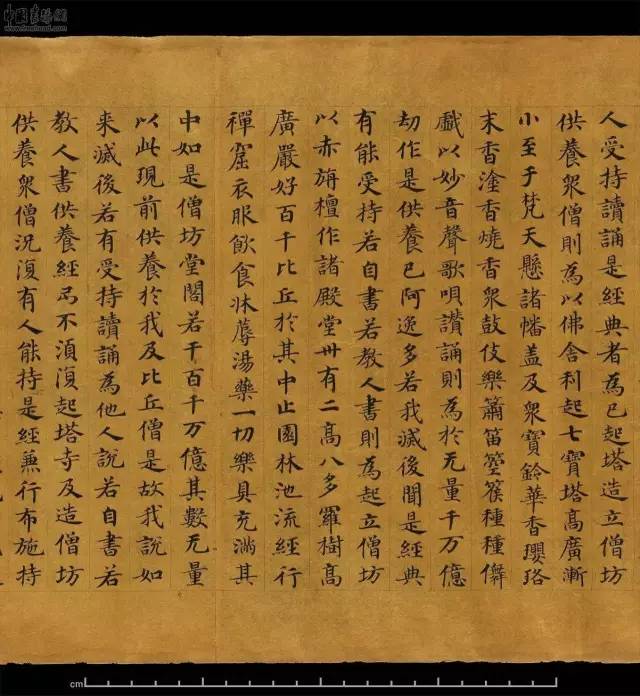 人受持讀誦是經典者為已起塔造立僧坊
供養衆僧則為以佛舍利起七寶塔高廣漸
小至于梵天懸諸幡盖及衆寶鈴華香瓔珞
末香塗香燒香衆鼓伎樂簫笛箜篌種種儛
戲以妙音聲歌唄讚誦則為於无量千万億
劫作是供養已阿逸多若我滅後聞是經典
有能受持若自書若教人書則為起立僧坊
以赤旃檀作諸殿堂卅有二高八多羅樹高
廣嚴好百千比丘於其中止園林池流經行
禪窟衣服飲食牀蓐湯藥一切樂具充滿其
中如是僧坊堂閣若干百千万億其數无量
以此現前供養於我及比丘僧是故我說如
来滅後若有受持讀誦為他人說若自書若
教人書供養經弓不湏復起塔寺及造僧坊
供養衆僧況復有人能持是經兼行布施持
cm